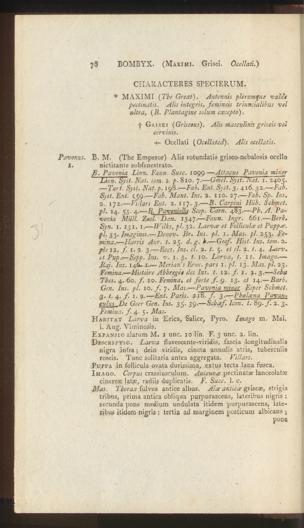 78 BOMBYX. (MAXIMI. Grisei. Ocellati.)
CHARACTERES SPECIERUM.
* MAXIMI (The Great). Antennis plerumque valde
pectinatis. Alis integris, femineis triuncialibus vel
ultra, (B. Plantagine solum excepto).
† GRISEI (Griseous). Alis masculinis griseis vel
cervinis.
Ocellati (Ocellated). Alis ocellatis.
Pavonus. B. M. (The Emperor) Alis rotundatis griseo-nebulosis ocello
1. nictitante subfenestrato.
B. Pavonia Linn. Faun. Suec. 1099.—Attacus Pavonia minor
Linn. Syst. Nat. tom. 2. p. 810. 7.—Gmel. Syst. Nat. 1. 2403.
—Turt. Syst. Nat. p. 198.—Fab. Ent. Syst. 3. 416. 33.—Fab.
Syst. Ent. 559.—Fab. Mant. Ins. 2. 110. 27.—Fab. Sp. Ins.
2. 172.—Villars Ent. 2. 117. 3.—B. Carpini Hüb. Schmet.
pl. 14. 53. 4.—B. Pavoniella Scop. Carn. 483.—Ph. A. Pa-
vonia Müll. Zool. Dan. 1347.—Faun. Ingr. 161.—Berk.
Syn. 1. 131. 1.—Wilks, pl. 32. Larvæ et Follicule et Puppæ.
pl. 33. Imagines.—Donov. Br. Ins. pl. 1. Mas. pl. 253. Fe-
mina.—Harris Aur. t. 25. d. g. k.—Geof. Hist. Ins. tom. 2.
Reaum. Ins.
et Pup.—Sepp. Ins. v. 1. 3. t. 10. Larva, t. 11. Imago.—
Raj. Ins. 146. 2.—Merian's Eur. pars 1. pl. 13. Mas. pl. 23.
Femina.—Histoire Abbregée des Ins. t. 12. f. 1. 2. 3.—Seba
Thes. 4. 60. f. 10. Femina, et forte f. 9. 13. et 14.—Barb.
Gen. Ins. pl. 10. f. 7. Mas.—Pavonia minor Esper Schmet.
3. t. 4. f. 1. 9.—Ent. Paris. 218. f. 3.—Phalæna Pavunculus De Geer
HABITAT Larva in Erica, Salice, Pyro. Imago m. Mai,
i. Aug. Viminealis.
EXPANSIO alarum M. 2 unc. 10 lin. F. 3 unc. 2. lin.
DESCRIPTIO. Larva flavescente-viridis, fascia longitudinalis
nigra infra; dein viridis, cincta annulis atris, tuberculis
roseis. Tunc solitaria antea aggregata. Villars.
PUPPA in follicula ovata durissima, extus tecta lana fusca.
IMAGO. Corpus crassiusculum. Antennæ pectinatæ lanceolatæ
cinereæ latæ, radiis duplicatis. F. Suec. l. c.
Mas. Thorax fulvus antice albus. Alæ anticæ griseæ, strigis
tribus, prima antica obliqua purpurascens, lateribus nigris:
secunda pone medium undulata itidem purpurascens, late-
ribus itidem nigris: tertia ad marginem posticum albicans;
pone